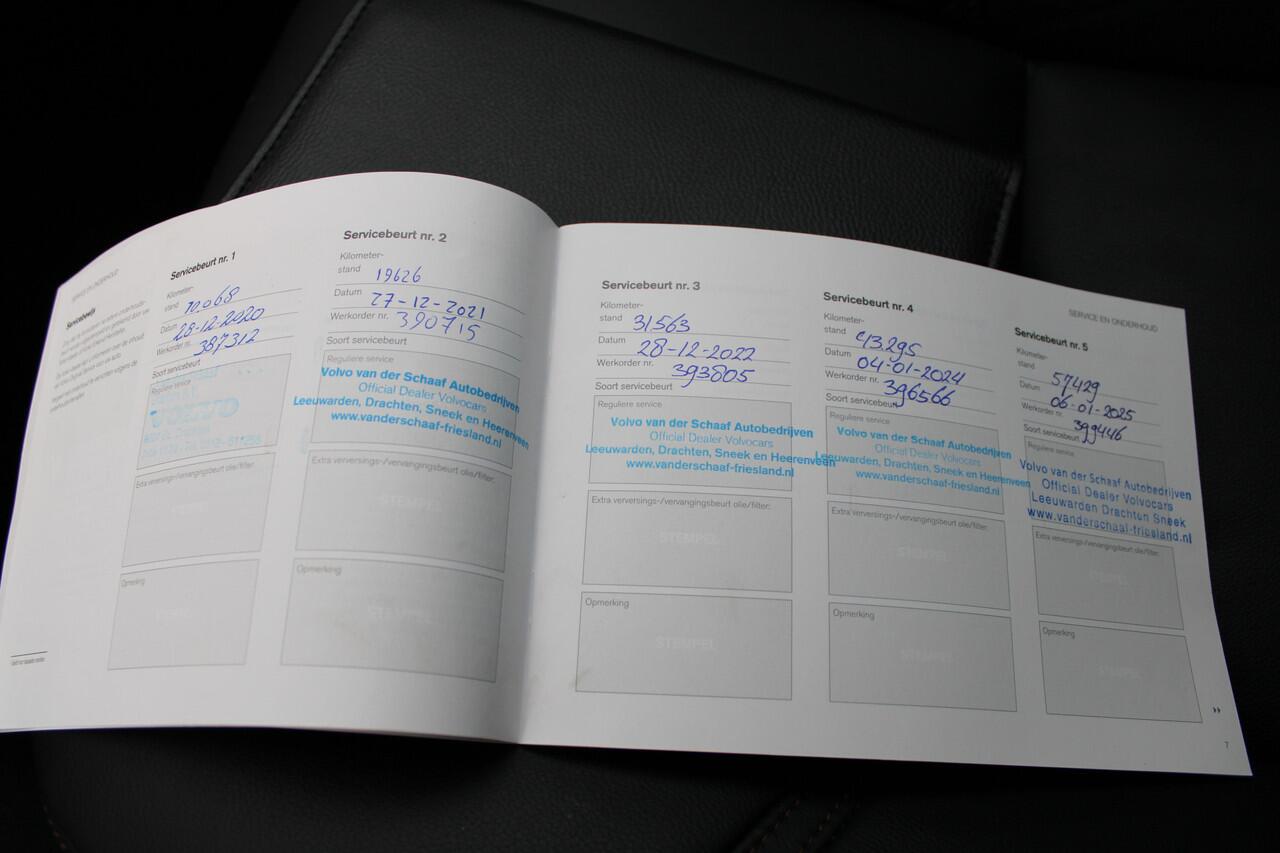 SERVICE EN ONDERHOUD
Servicebewijs
Servicebeurt nr. 1
Kilometer-
stand 10.068
Datum 28-12-2020
Werkorder nr. 387312
Soort servicebeurt
Reguliere service
VOLVO
Extra verversings-/vervangingsbeurt olie/filter:
Opmerking
Servicebeurt nr. 2
Kilometer-
stand 19626
Datum 27-12-2021
Werkorder nr. 390715
Soort servicebeurt
Reguliere service
Volvo van der Schaaf Autobedrijven
Official Dealer Volvocars
Leeuwarden, Drachten, Sneek en Heerenveen
www.vanderschaaf-friesland.nl
Extra verversings-/vervangingsbeurt olie/filter:
STEMPEL
Opmerking
STEMPEL
Servicebeurt nr. 3
Kilometer-
stand 31.563
Datum 28-12-2022
Werkorder nr. 393805
Soort servicebeurt
Reguliere service
Volvo van der Schaaf Autobedrijven
Official Dealer Volvocars
Leeuwarden, Drachten, Sneek en Heerenveen
www.vanderschaaf-friesland.nl
Extra verversings-/vervangingsbeurt olie/filter:
STEMPEL
Opmerking
STEMPEL
Servicebeurt nr. 4
Kilometer-
stand 43.295
Datum 04-01-2024
Werkorder nr. 396566
Soort servicebeurt
Reguliere service
Volvo van der Schaaf Autobedrijven
Official Dealer Volvocars
Leeuwarden, Drachten, Sneek en Heerenveen
www.vanderschaaf-friesland.nl
Extra verversings-/vervangingsbeurt olie/filter:
STEMPEL
Opmerking
STEMPEL
SERVICE EN ONDERHOUD
Servicebeurt nr. 5
Kilometer-
stand 57429
Datum 06-01-2025
Werkorder nr. 399446
Soort servicebeurt
Reguliere service
Volvo van der Schaaf Autobedrijven
Official Dealer Volvocars
Leeuwarden Drachten Sneek
www.vanderschaaf-friesland.nl
Extra verversings-/vervangingsbeurt olie/filter:
STEMPEL
Opmerking
STEMPEL
7